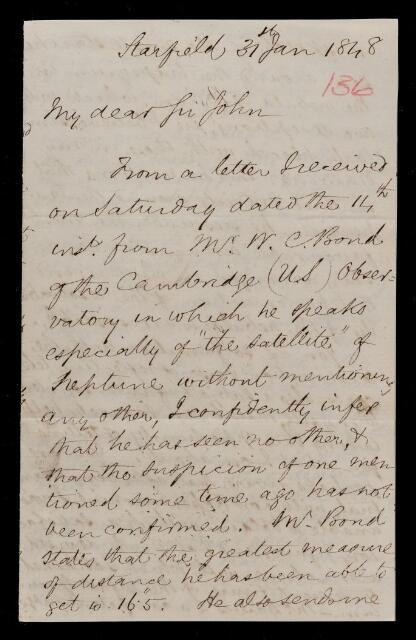 Starfield 31st Jan 1848
136
My dear Sir John
From a letter I received
on Saturday dated the 14th
inst. from Mr W. C. Bond
of the Cambridge (U S) Obser=
vatory in which he speaks
especially of "the satellite" of
Neptune without mentioning
any other, I confidently infer
that he has seen no other, &
that the suspicion of one men
tioned some time ago has not
been confirmed. Mr Bond
states that the greatest measure
of distance he has been able to
get is 16".5. He also sends me